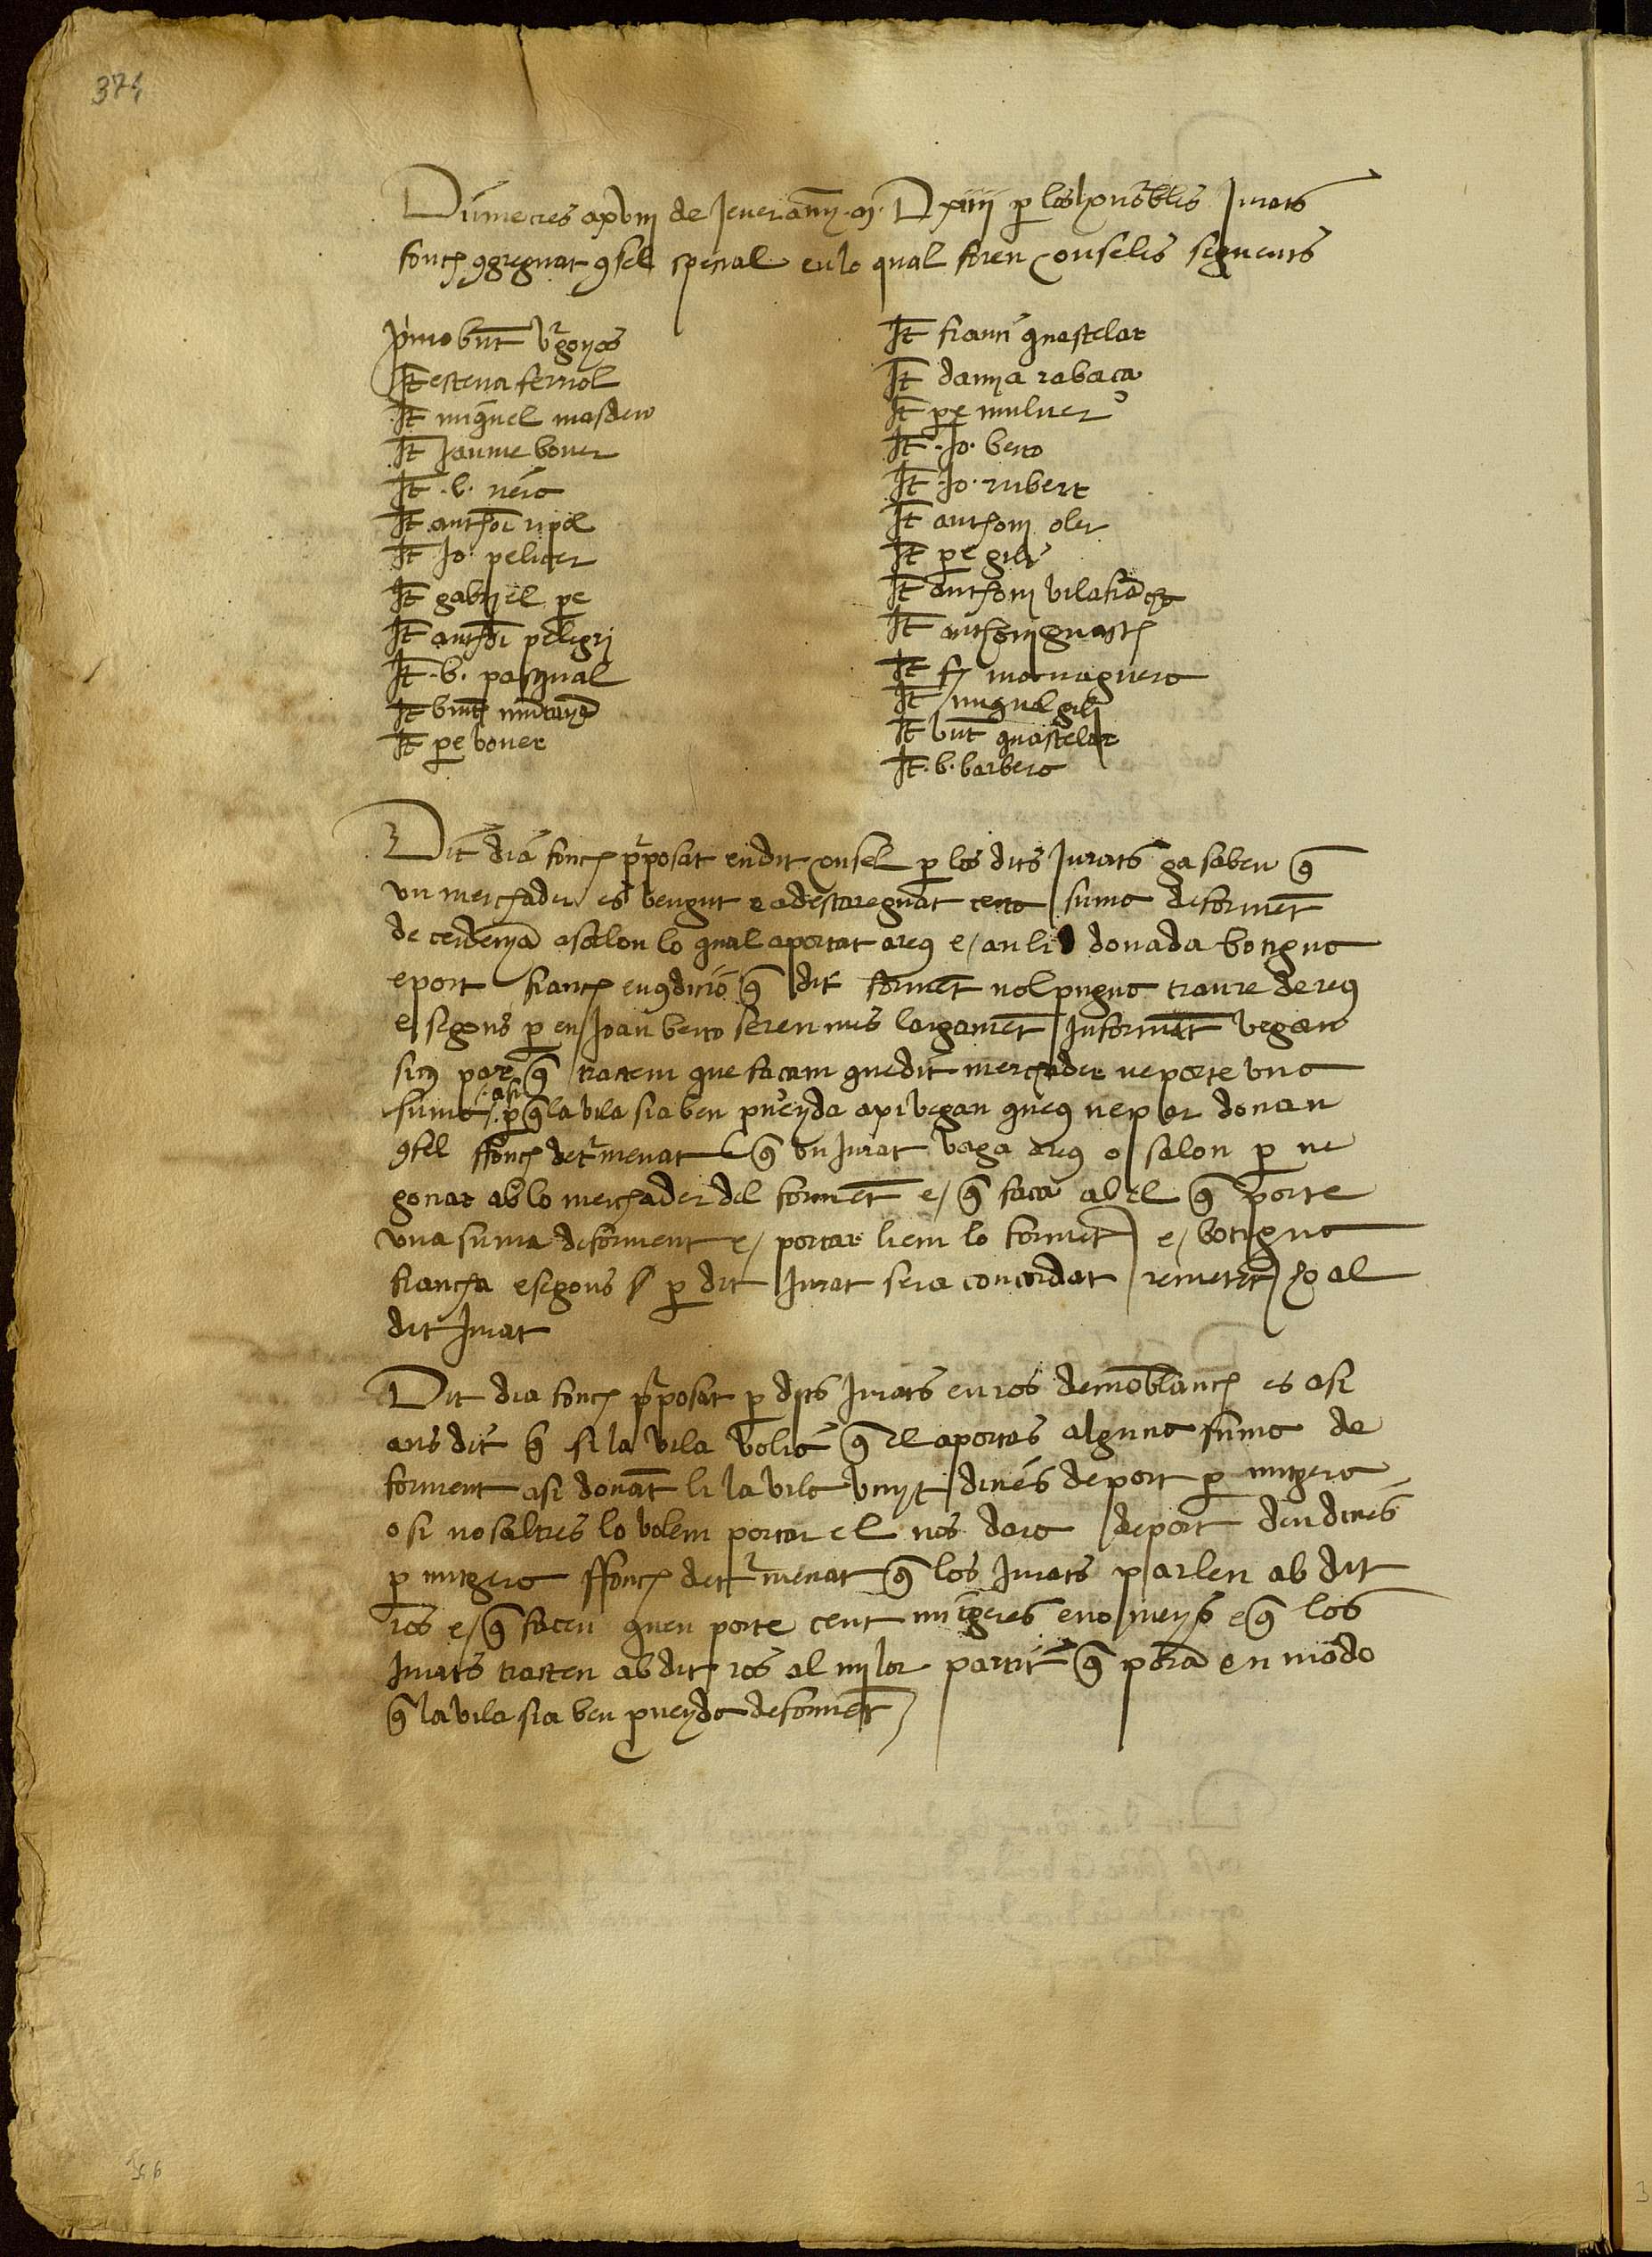 374
Dimecres a xviii de Jener any .M. D xiiii per los honorables Jurats
fonch congreguat consel special en lo qual foren consellés seguents
primo bnt vrgonyos
It esteva ferriol
It miquel masdeu
It Jaume bover
It .b. neia
It anthoi ripol
It Jo. pelicer
It gabriel pe
It anthoi peligri
It .b. pasqual
It bnt muntanya
It pe bover
It franci quastelar
It damia rabaça
It pe muluer
It .Jo. berto
It .Jo. rubert
It anthoni oler
It pe gili
It anthoni vilafrancha
It anthoni guasch
It fr maruaguera
It miquel gili
It bnt quastelar
It .b. barbera
Dit dia fonch proposat en dit consel per los dits Jurats ça saben que
un merchader es vengut e a destareguat certa suma de forment
de cerdenya a salou lo qual a portat a reus e an li donada botigua
e port franch en condicio que dit forment nol pugua traure de reus
e segons per en Joan berto seren mes largament Informats vegan
sius par que tractem que façam que dit merchader ne porte una
suma asi per que la vila sia ben proveyda api vegan queus ne par donan
consel ffonch determenat que un Jurat vaga a reus o salou per ne
goçiar ab lo merchader del forment e que faça ab el que porte
una suma de forment e portar liem lo forment e botigua
francha e segons per dit Jurat sera concordat remetent ho al
dit Jurat
Dit dia fonch proposat per dits Jurats en ros de momblanch es asi
ans dit que si la vila volia que ell aportas alguna suma de
forment asi donant li la vila vuyt dinés de port per mitgera
o si nosaltres lo volem portar el nos dara de port deu dinés
per mitgera ffonch determenat que los Jurats parlen ab dit
ros e que facen quen porte cent mitgeres e no meys e que los
Jurats tracten ab dit ros al mylor partit que poran en modo
que la vila sia ben proveyda de forment